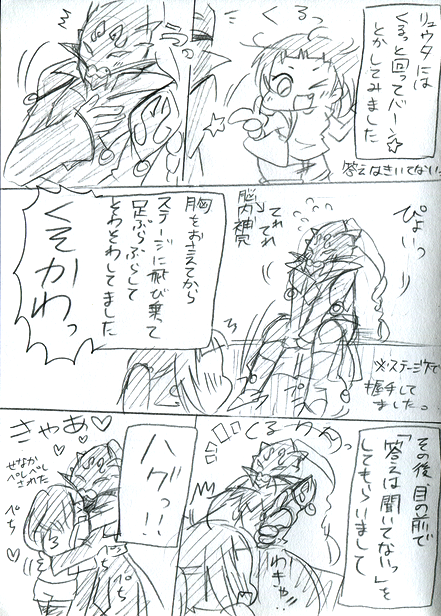 リュウタには
くるっと回ってバーン☆
とかしてみました
答えはきいてない。
くるっ
うっ
ぴょいっ
てれ
てれ
脳内補完
胸をおさえてから
ステージに飛び乗て
足ぶらぶらして
そわそわしてました
くそかわっ
※ステージ下で
握手して
ました。
その後、目の前で
「答えは聞いてないっ」を
してもらいまして
くるりんっ
わきゃっ!!
ハグっ!!
きゃあ♡
せなか
ペしペし
された
ぺち
ぺち